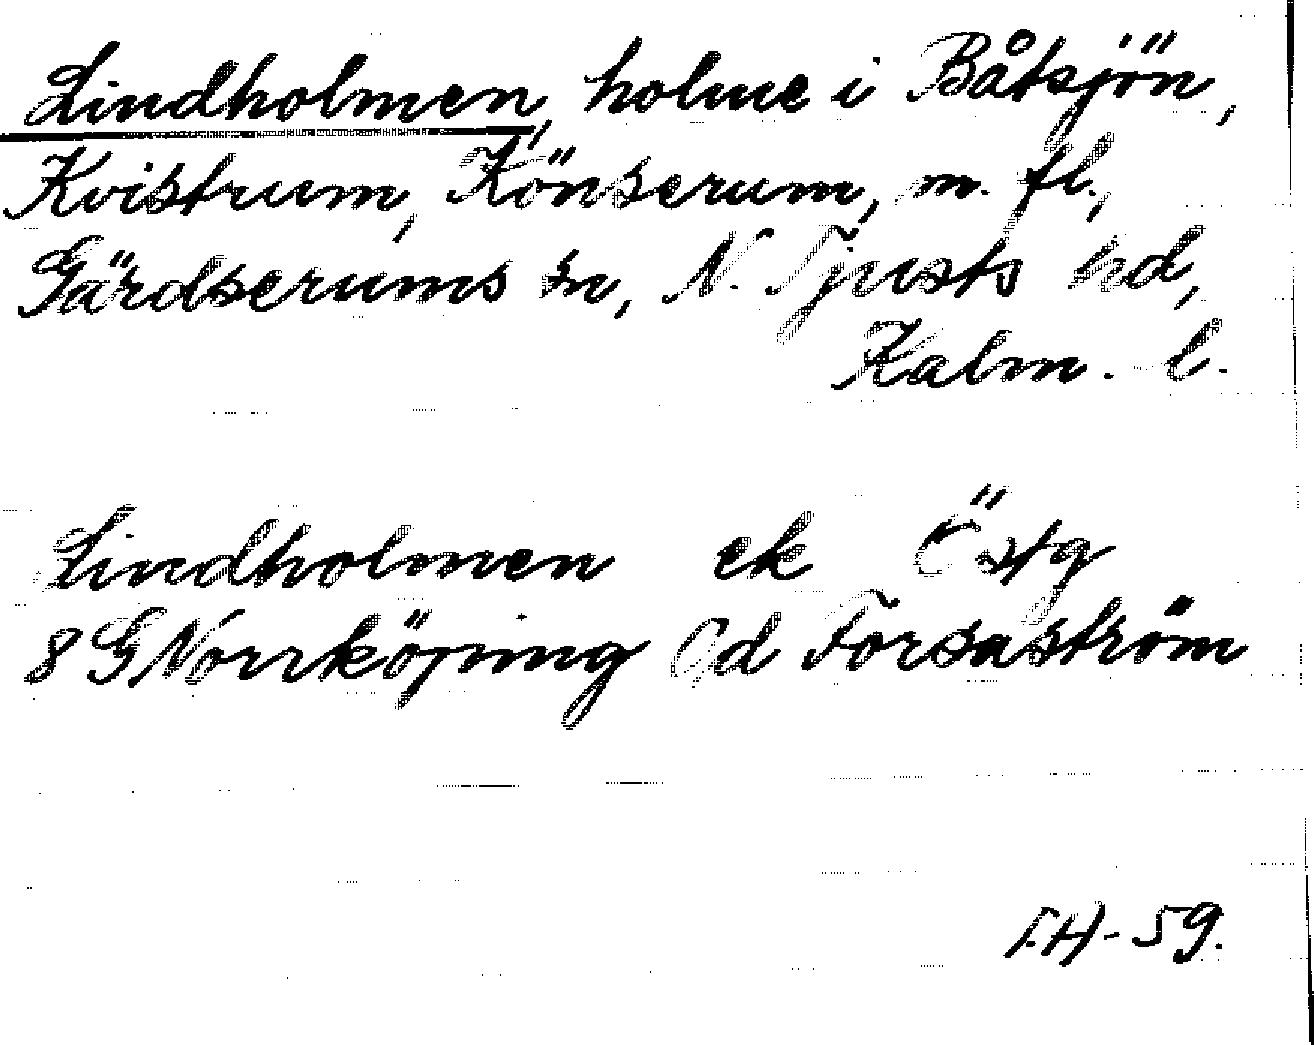 Lindholmen, holme i Båtsjön,
Kvistrum, Könserum, m. fl.,
Gärdserums sn, N. Tjusts hd,
Kalm. l.
Lindholmen ek Östg
8 G Norrköping Od Forsaström
T.H-59.